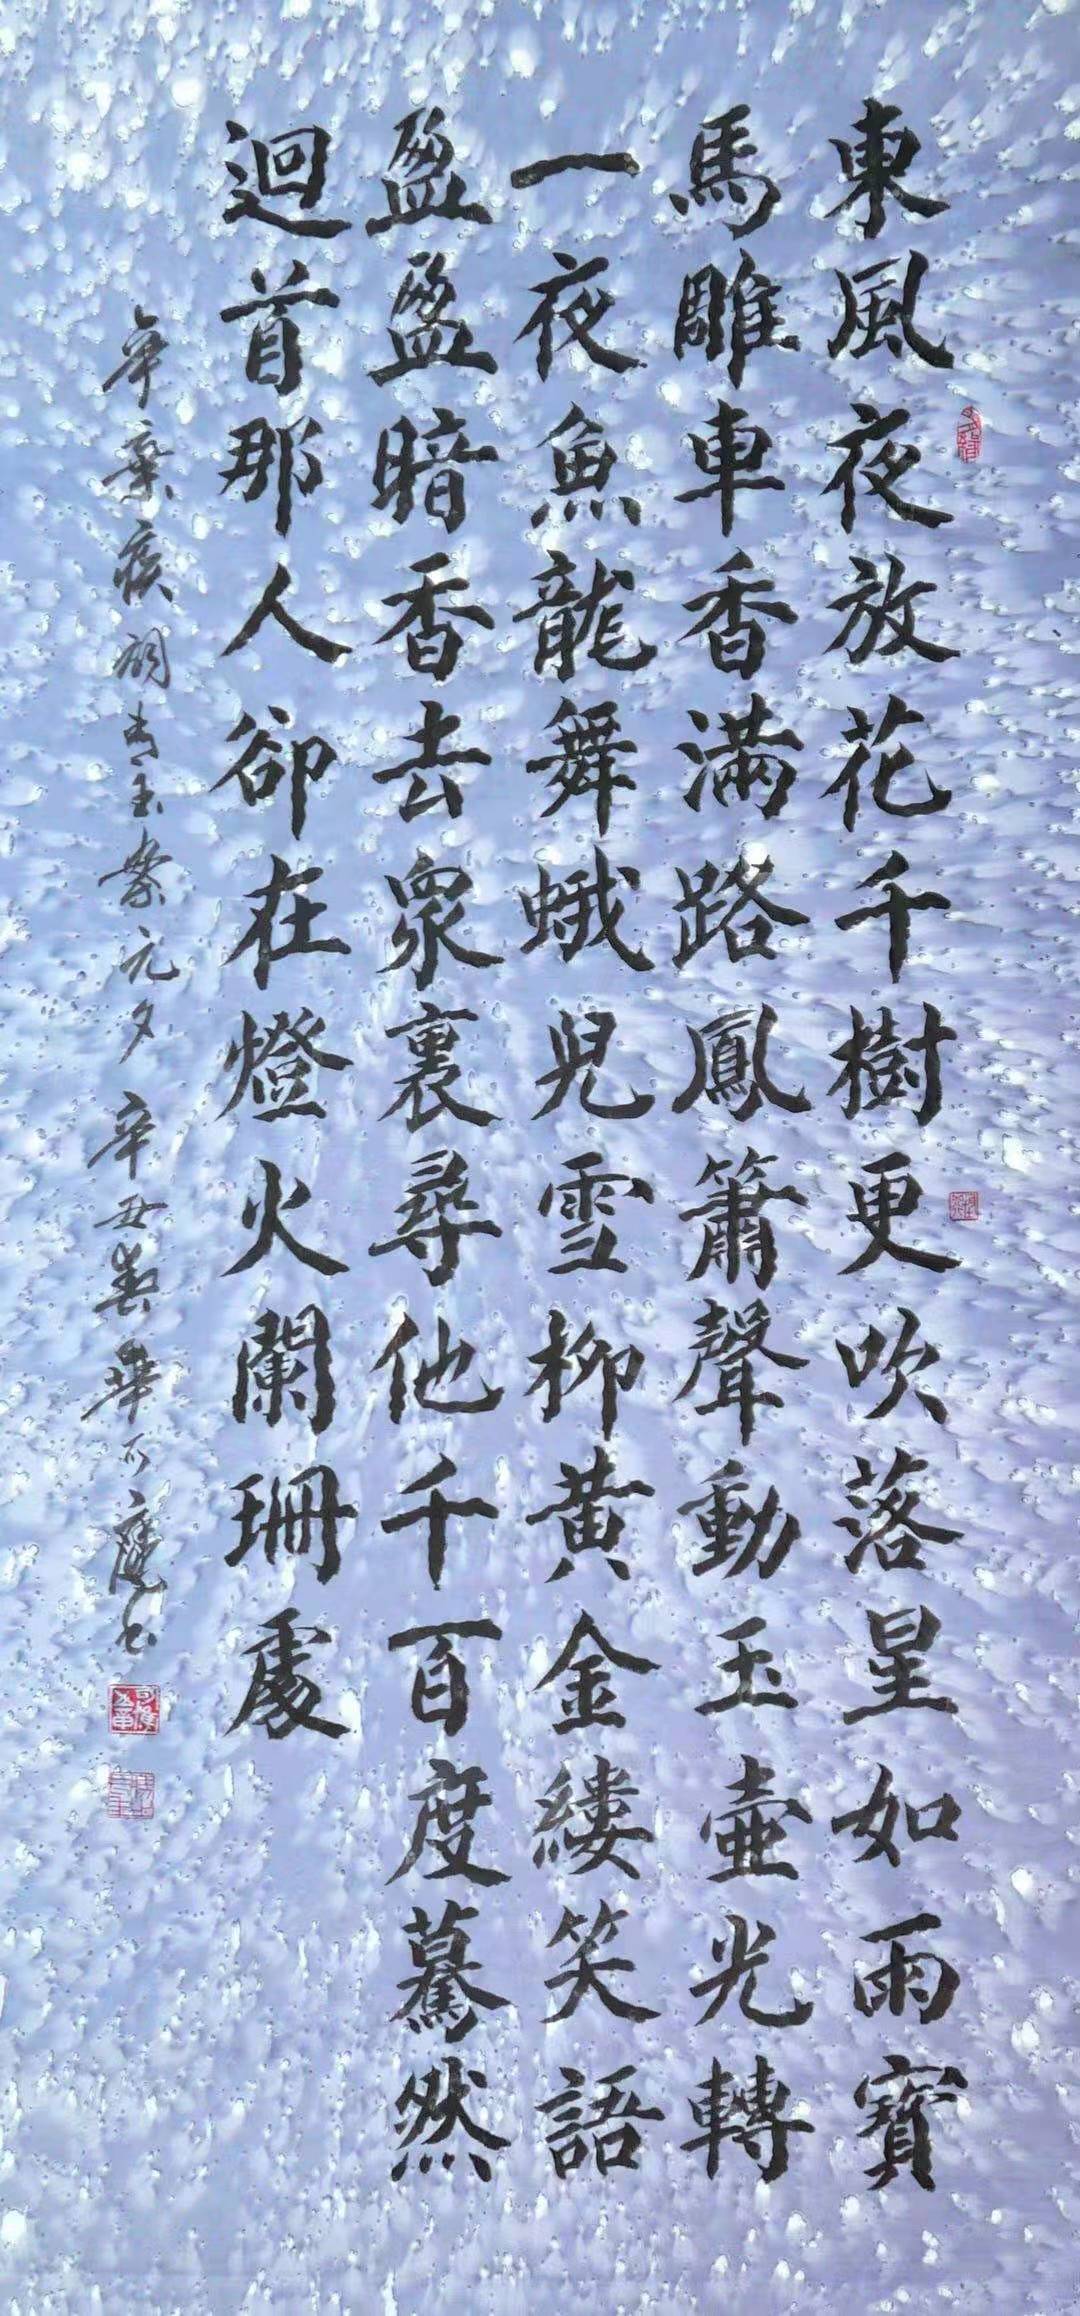 東風夜放花千樹更吹落星如雨寶
馬雕車香滿路鳳簫聲動玉壺光轉
一夜魚龍舞蛾兒雪柳黃金縷笑語
盈盈暗香去眾裏尋他千百度驀然
迴首那人卻在燈火闌珊處
辛棄疾詞青玉案元夕辛丑